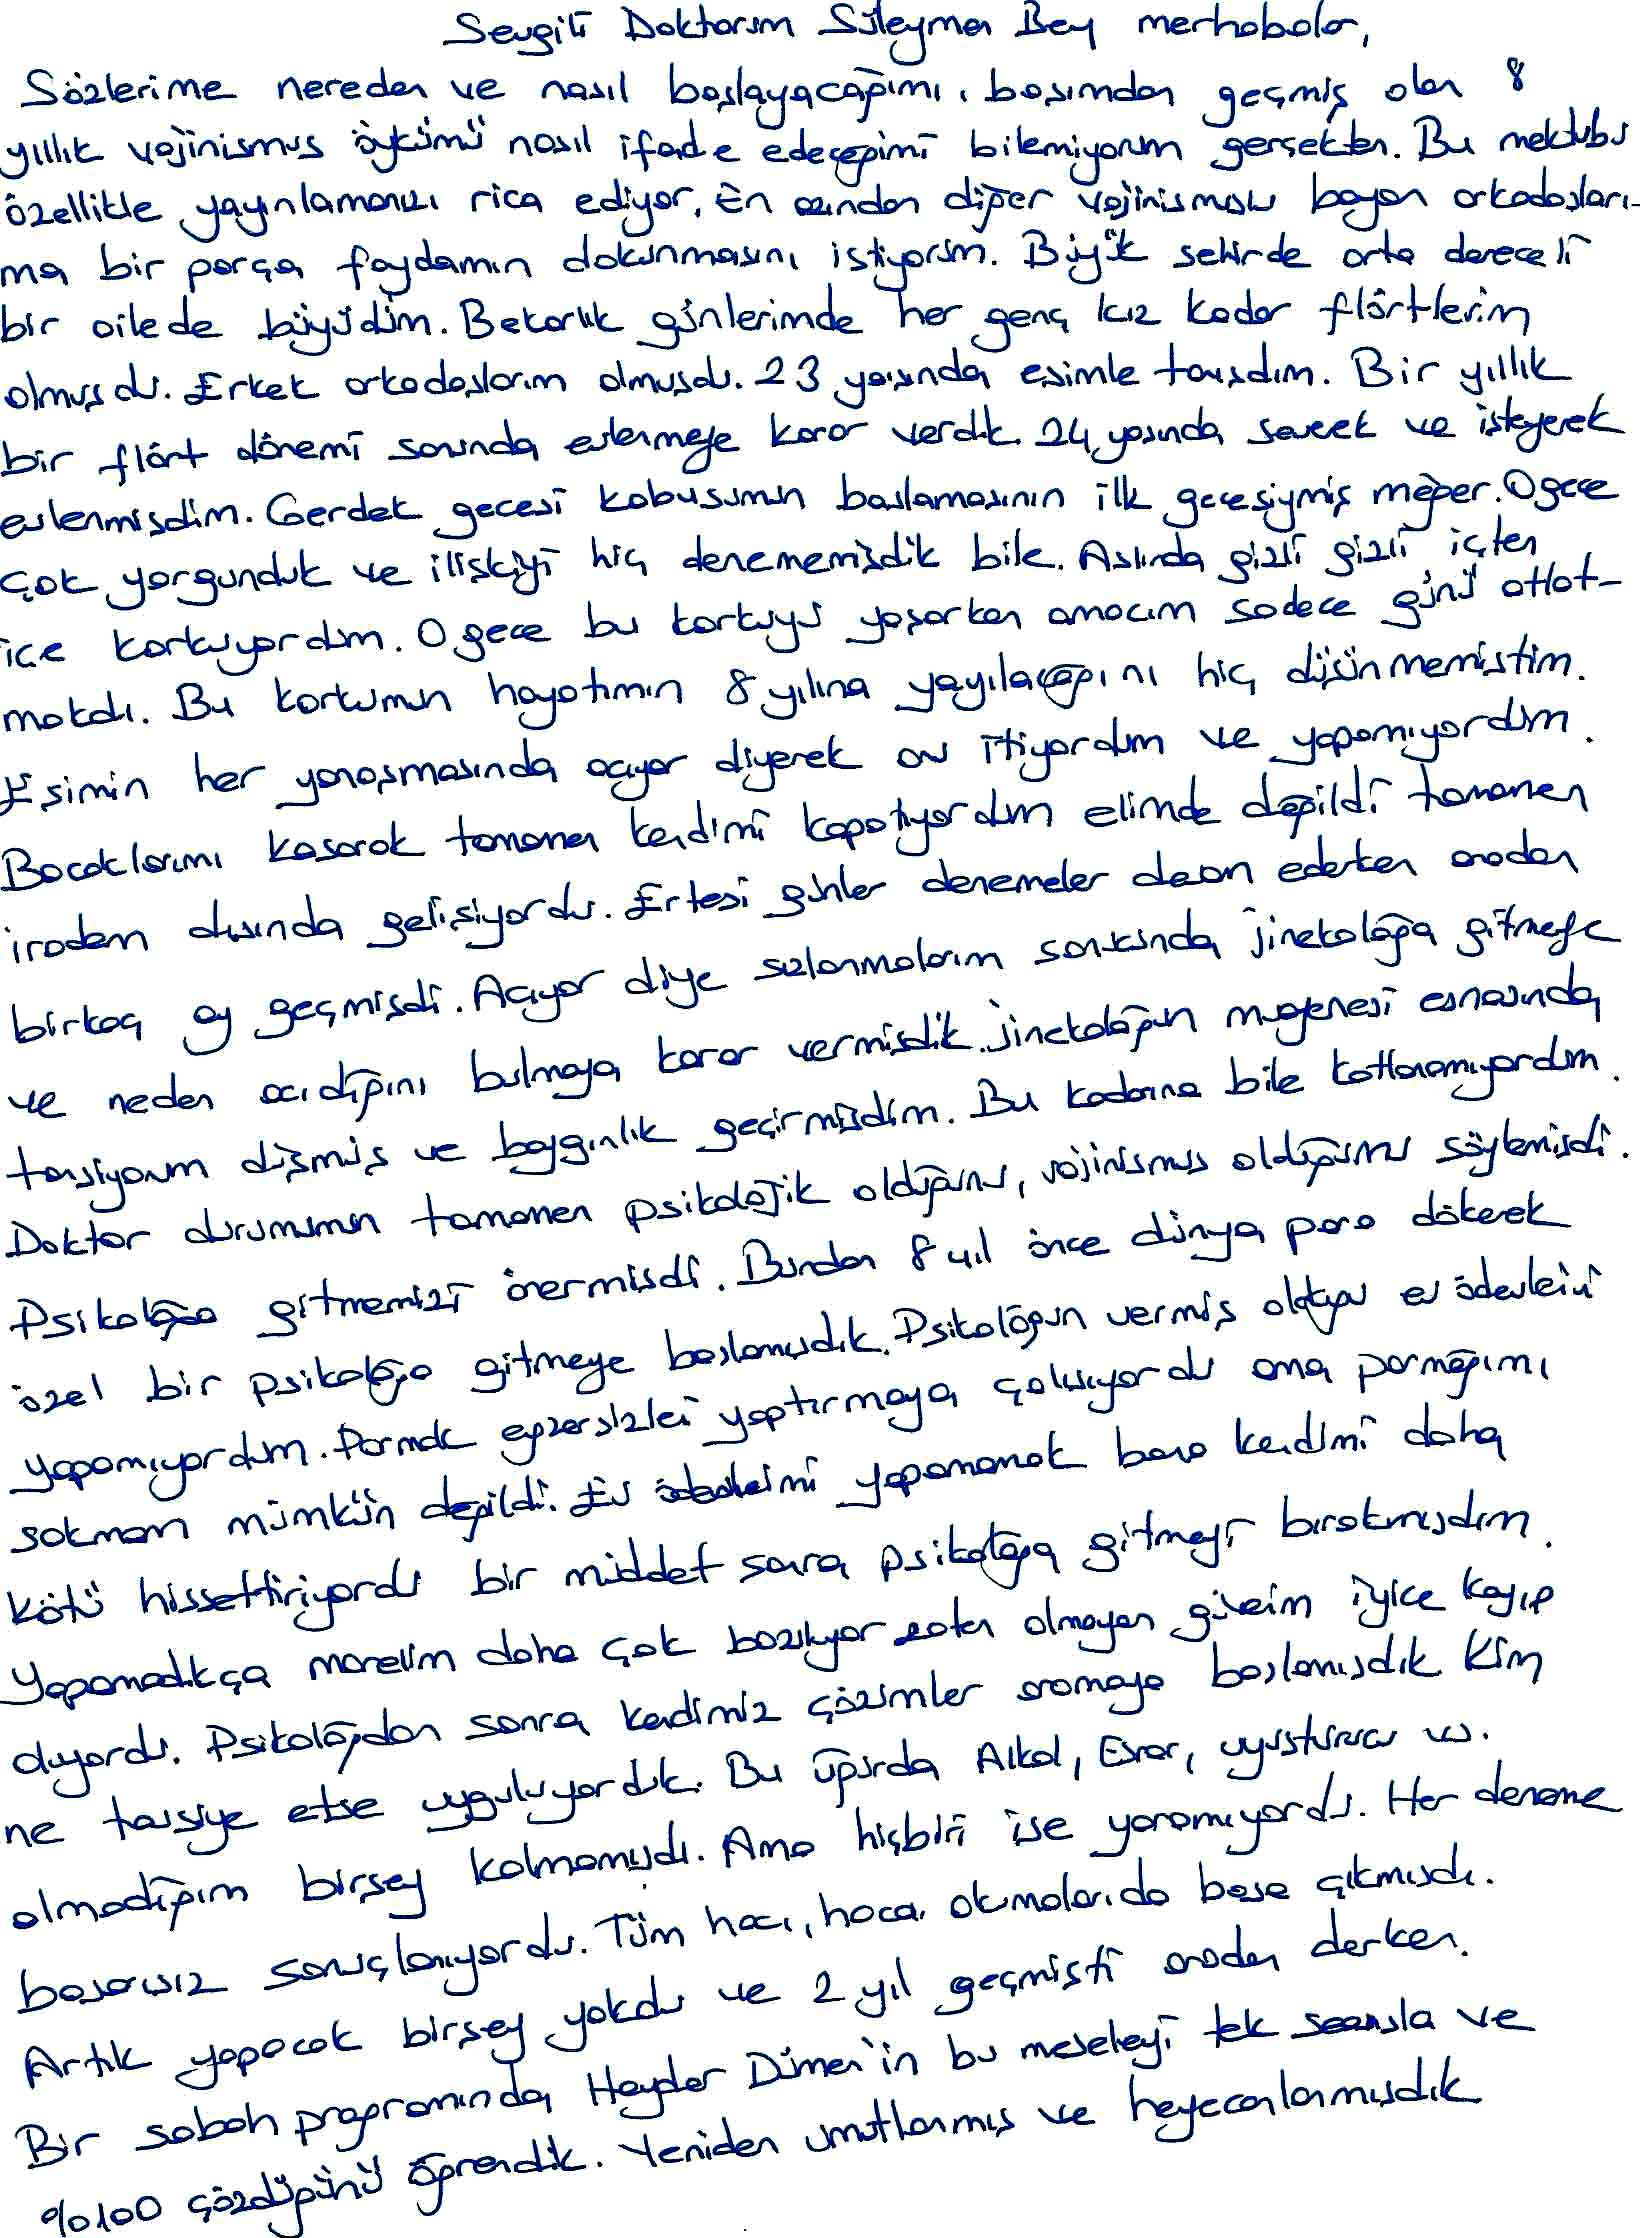 Sevgili Doktorum Süleyman Bey merhabalar,
Sözlerime nereden ve nasıl başlayacağımı, başımdan geçmiş olan 8
yıllık vajinismus öykümü nasıl ifade edeceğimi bilemiyorum gerçekten. Bu mektubu
özellikle yayınlamanızı rica ediyor, En azından diğer vajinismuslu bayan arkadaşları-
ma bir parça faydamın dokunmasını istiyorum. Büyük şehirde orta dereceli
bir ailede büyüdüm. Bekarlık günlerimde her genç kız kadar flörtlerim
olmuşdu. Erkek arkadaşlarım olmuşdu. 23 yaşında eşimle tanışdım. Bir yıllık
bir flört dönemi sonunda evlenmeye karar verdik. 24 yaşında severek ve isteyerek
evlenmişdim. Gerdek gecesi kabusumun başlamasının ilk gecesiymiş meğer. O gece
çok yorgunduk ve ilişkiyi hiç denememişdik bile. Aslında gizli gizli içten
içe korkuyordum. O gece bu korkuyu yaşarken amacım sadece günü atlat-
makdı. Bu korkumun hayatımın 8 yılına yayılacağını hiç düşünmemiştim.
Eşimin her yanaşmasında acıyor diyerek onu itiyordum ve yapamıyordum.
Bacaklarımı kasarak tamamen kendimi kapatıyordum elimde değildi tamamen
iradem dışında gelişiyordu. Ertesi günler denemeler devam ederken aradan
birkaç ay geçmişdi. Acıyor diye sızlanmalarım sonucunda jinekoloğa gitmeye
ve neden acıdığını bulmaya karar vermişdik. Jinekoloğun muayenesi esnasında
tansiyonum düşmüş ve baygınlık geçirmişdim. Bu kadarına bile katlanamıyordum.
Doktor durumumun tamamen psikolojik olduğunu, vajinismus olduğumu söylemişdi.
Psikoloğa gitmemizi önermişdi. Bundan 8 yıl önce dünya para dökerek
özel bir psikoloğa gitmeye başlamışdık. Psikoloğun vermiş olduğu ev ödevlerini
yapamıyordum. Parmak egzersizleri yaptırmaya çalışıyordu ama parmağımı
sokmam mümkün değildi. Ev ödevlerimi yapamamak bana kendimi daha
kötü hissettiriyordu bir müddet sonra psikoloğa gitmeyi bırakmışdım.
Yapamadıkça moralim daha çok bozuluyor zaten olmayan güvenim iyice kayıp
oluyordu. Psikoloğdan sonra kendimiz çözümler aramaya başlamışdık Kim
ne tavsiye etse uyguluyorduk. Bu uğurda Alkol, Esrar, uyuşturucu vs.
olmadığım birşey kalmamışdı. Ama hiçbiri işe yaramıyordu. Her deneme
başarısız sonuçlanıyordu. Tüm hacı, hoca, okumalarıda boşa çıkmışdı.
Artık yapacak birşey yokdu ve 2 yıl geçmişti aradan derken.
Bir sabah programında Haydar Dümen'in bu meseleyi tek seansla ve
%100 çözdüğünü öğrendik. Yeniden umutlanmış ve heyecanlanmışdık